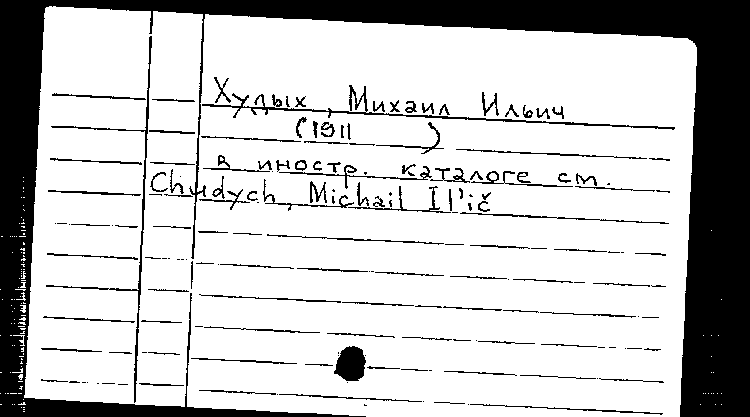 Худых, Михаил Ильич
(1911 )
в иностр. каталоге см.
Chudych, Michail Il'ič